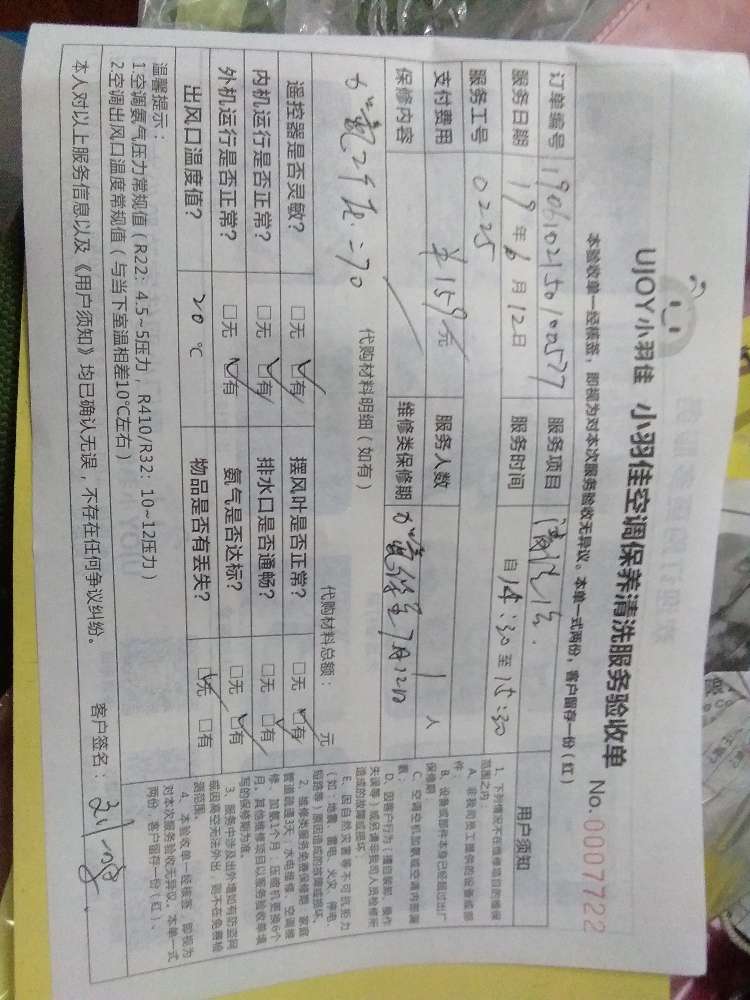 UJOY小羽佳 小羽佳空调保养清洗服务验收单 No.0007722
本验收单一经核签，即视为对本次服务验收无异议。本单一式两份，客户留存一份（红）
订单编号 服务项目 清洗
服务日期 19年6月12日 服务时间 自14:30至15:30
服务工号 0225
支付费用 ¥159元 服务人数 1人
保修内容 维修类保修期 加氟保至7月12日
代购材料明细（如有） 代购材料总额： 元
加氟2个压=70
遥控器是否灵敏？ □无 □有 摆风叶是否正常？ □无 □有
内机运行是否正常？ □无 □有 排水口是否通畅？ □无 □有
外机运行是否正常？ □无 □有 氨气是否达标？ □无 □有
出风口温度值？ 20℃ 物品是否有丢失？ □无 □有
温馨提示：
1.空调氨气压力常规值（R22：4.5~5压力，R410/R32：10~12压力）
2.空调出风口温度常规值（与当下室温相差10℃左右）
本人对以上服务信息以及《用户须知》均已确认无误，不存在任何争议纠纷。 客户签名：
用户须知
1、下列情况不在维修项目的维保范围之内：
A、非我司员工提供的设备或部件；
B、设备或部件本身已经超过出厂保修期
C、空调空机加氨或空调内部漏氨；
D、因客户行为（擅自装卸、操作失误等）或另请非我司人员检修所造成的故障或损坏；
E、因自然灾害等不可抗拒力（如：地震、雷电、火灾、停电、短路等）原因造成的故障或损坏。
2、维修类服务免费保修期：家庭管道疏通3天，水电维修、空调维修、加氨1个月；压缩机更换6个月。其他维修项目以服务验收单填写的保修期为准。
3、服务中涉及出外墙如有防盗网或因高空无法外出，则不在免费检测范围。
本验收单一经核签，即视为对本次服务验收无异议。本单一式两份，客户留存一份（红）、